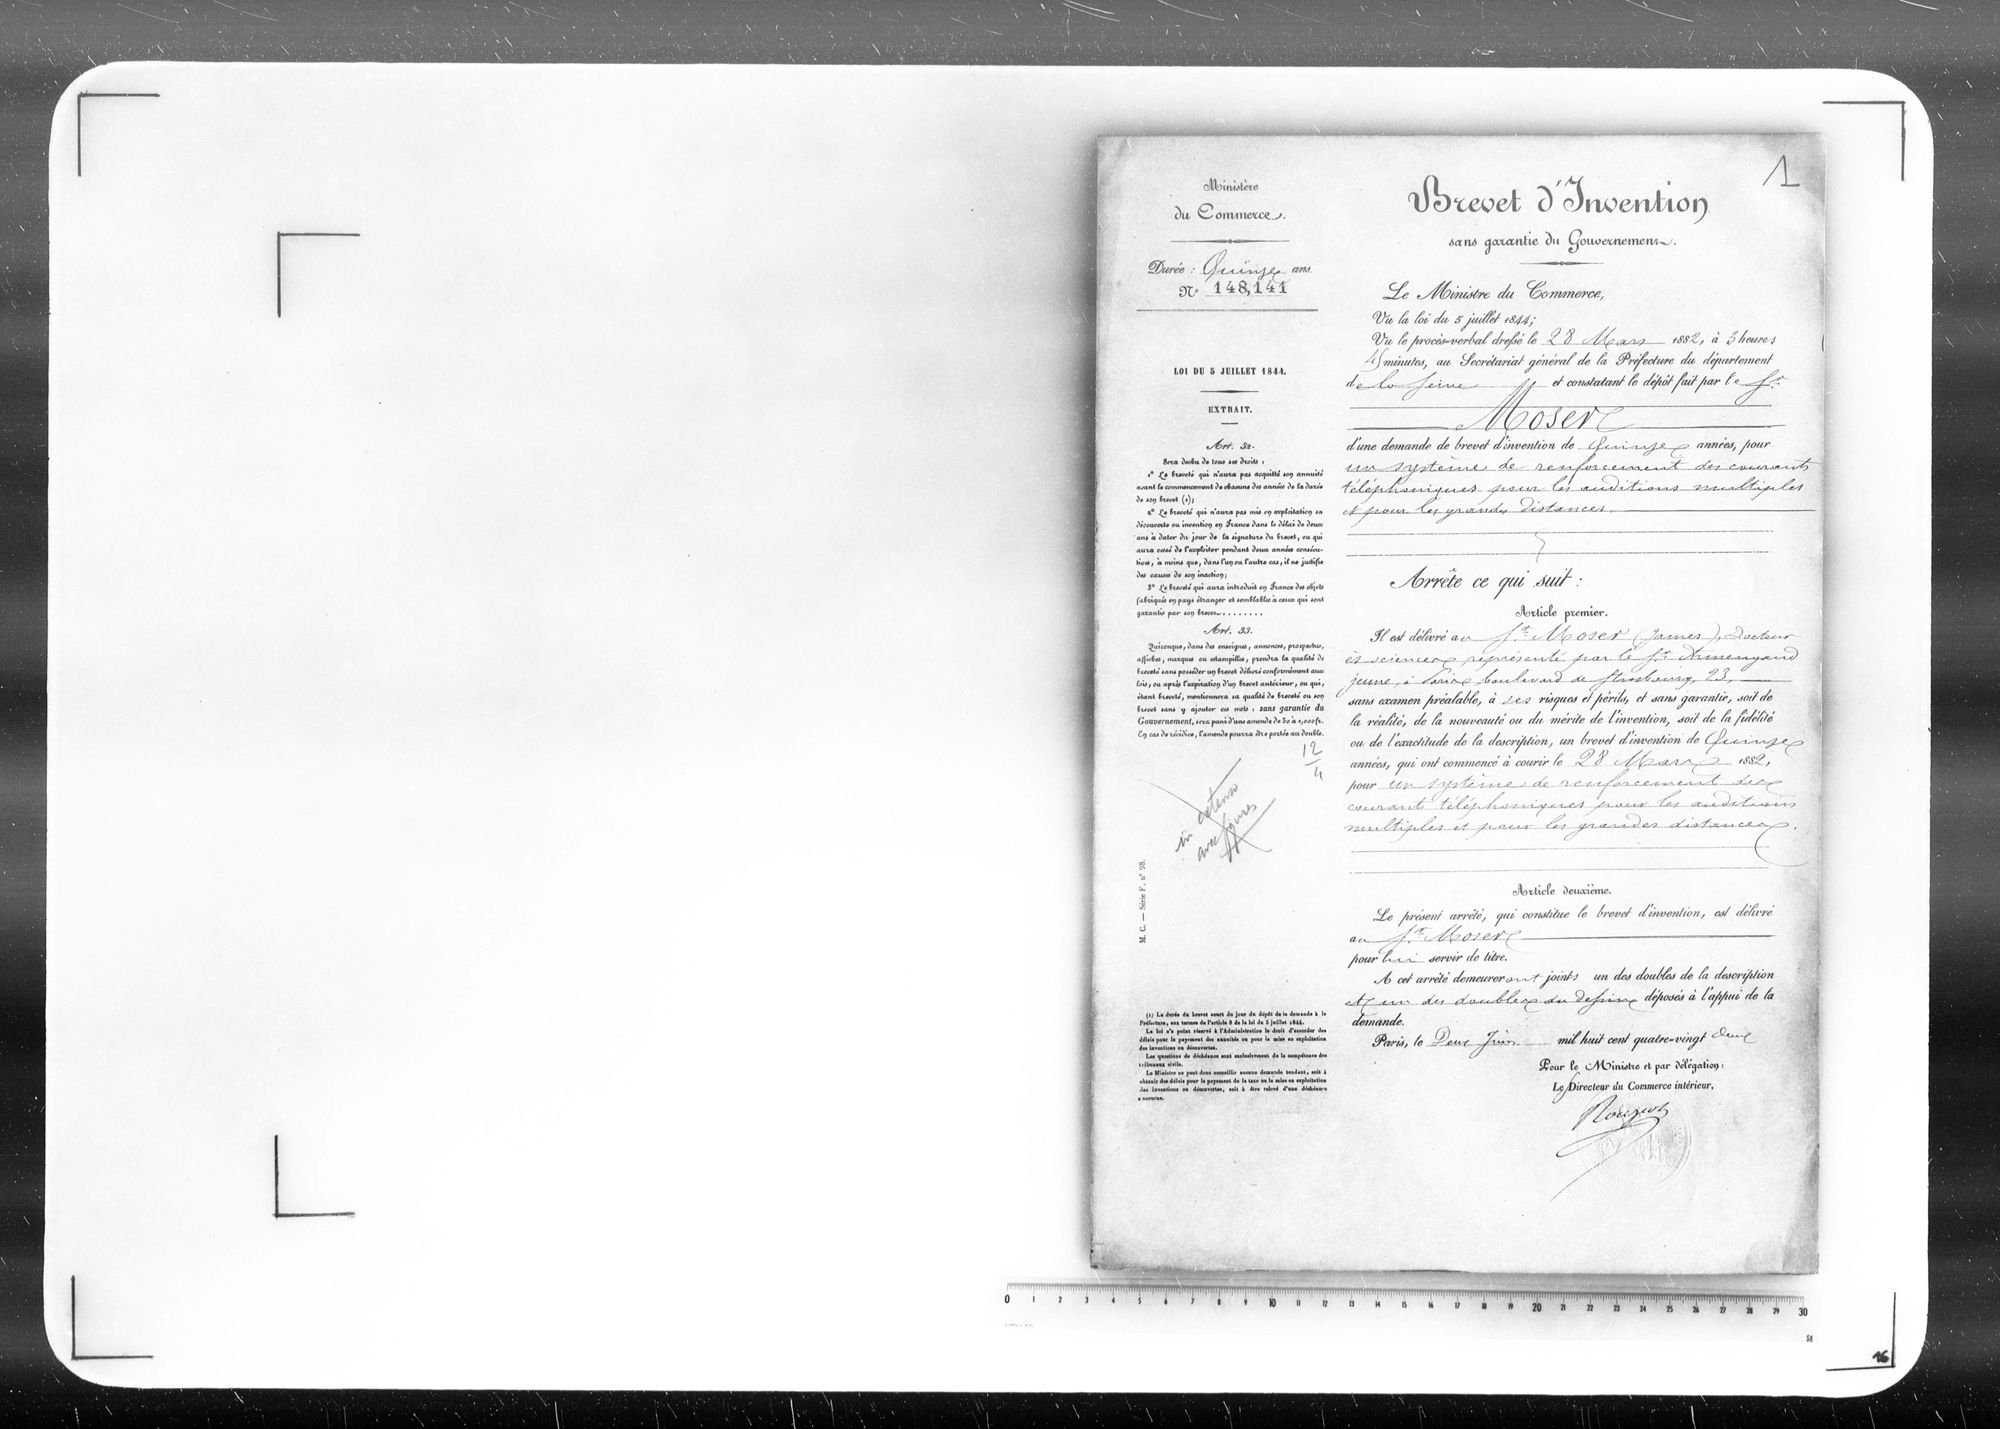 Ministère
du Commerce.
Durée : Quinze ans.
N° 148,141
LOI DU 5 JUILLET 1844.
EXTRAIT.
Art. 32.
Sera déchu de tous ses droits :
1° Le breveté qui n'aura pas acquitté son annuité
avant le commencement de chacune des années de la durée
de son brevet (1);
2° Le breveté qui n'aura pas mis en exploitation sa
découverte ou invention en France dans le délai de deux
ans à dater du jour de la signature du brevet, ou qui
aura cessé de l'exploiter pendant deux années consécu-
tives, à moins que, dans l'un ou l'autre cas, il ne justifie
des causes de son inaction;
3° Le breveté qui aura introduit en France des objets
fabriqués en pays étranger et semblables à ceux qui sont
garantis par son brevet........
Art. 33.
Quiconque, dans des enseignes, annonces, prospectus,
affiches, marques ou estampilles, prendra la qualité de
breveté sans posséder un brevet délivré conformément aux
lois, ou après l'expiration d'un brevet antérieur, ou qui,
étant breveté, mentionnera sa qualité de breveté ou son
brevet sans y ajouter ces mots : sans garantie du
Gouvernement, sera puni d'une amende de 50 à 1,000 fr.
En cas de récidive, l'amende pourra être portée au double.
12
4
in extenso
avec figures
M. C. — Série F. n° 98.
(1) La durée du brevet court du jour du dépôt de la demande à la
Préfecture, aux termes de l'article 8 de la loi du 5 juillet 1844.
La loi n'a point réservé à l'Administration le droit d'accorder des
délais pour le payement des annuités ou pour la mise en exploitation
des inventions ou découvertes.
Les questions de déchéance sont exclusivement de la compétence des
tribunaux civils.
Le Ministre ne peut donc accueillir aucune demande tendant, soit à
obtenir des délais pour le payement de la taxe ou la mise en exploitation
des inventions ou découvertes, soit à être relevé d'une déchéance
encourue.
1
Brevet d'Invention
sans garantie du Gouvernement.
Le Ministre du Commerce,
Vu la loi du 5 juillet 1844;
Vu le procès-verbal dressé le 28 Mars 1882, à 3 heures
45 minutes, au Secrétariat général de la Préfecture du département
de la Seine et constatant le dépôt fait par le Sr
Moser
d'une demande de brevet d'invention de Quinze années, pour
un système de renforcement des courants
téléphoniques pour les auditions multiples
et pour les grandes distances.
Arrête ce qui suit :
Article premier.
Il est délivré au Sr Moser (James), Docteur
ès sciences représenté par le Sr Armengaud
jeune, à Paris boulevard de Strasbourg, 23,
sans examen préalable, à ses risques et périls, et sans garantie, soit de
la réalité, de la nouveauté ou du mérite de l'invention, soit de la fidélité
ou de l'exactitude de la description, un brevet d'invention de Quinze
années, qui ont commencé à courir le 28 Mars 1882,
pour un système de renforcement des
courants téléphoniques pour les auditions
multiples et pour les grandes distances.
Article deuxième.
Le présent arrêté, qui constitue le brevet d'invention, est délivré
au Sr Moser
pour lui servir de titre.
A cet arrêté demeureront joints un des doubles de la description
et un des doubles du dessin déposés à l'appui de la
demande.
Paris, le Deux Juin mil huit cent quatre-vingt deux
Pour le Ministre et par délégation :
Le Directeur du Commerce intérieur,
0 1 2 3 4 5 6 7 8 9 10 11 12 13 14 15 16 17 18 19 20 21 22 23 24 25 26 27 28 29 30
16